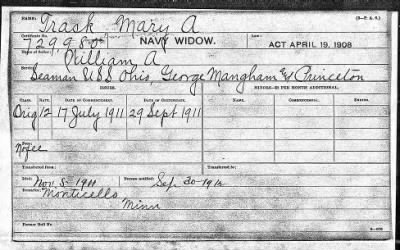 NAME: Trask Mary A (3-P. A. G.)
Certificate No. 729980 NAVY WIDOW. Law: ACT APRIL 19, 1908
Name of Sailor: William A
Service: Seaman U.S.S. Ohio, George Mangham & Princeton
ISSUES. MINORS—$2 PER MONTH ADDITIONAL.
CLASS. RATE. DATE OF COMMENCEMENT. DATE OF CERTIFICATE. NAME. COMMENCEMENT. ENDING.
Orig 12 17 July 1911 29 Sept 1911
Transferred from: Transferred to:
Died: Nov 5-1911 Bureau notified: Sep. 30-1912
Remarks: Monticello
Minn
Former Roll No.